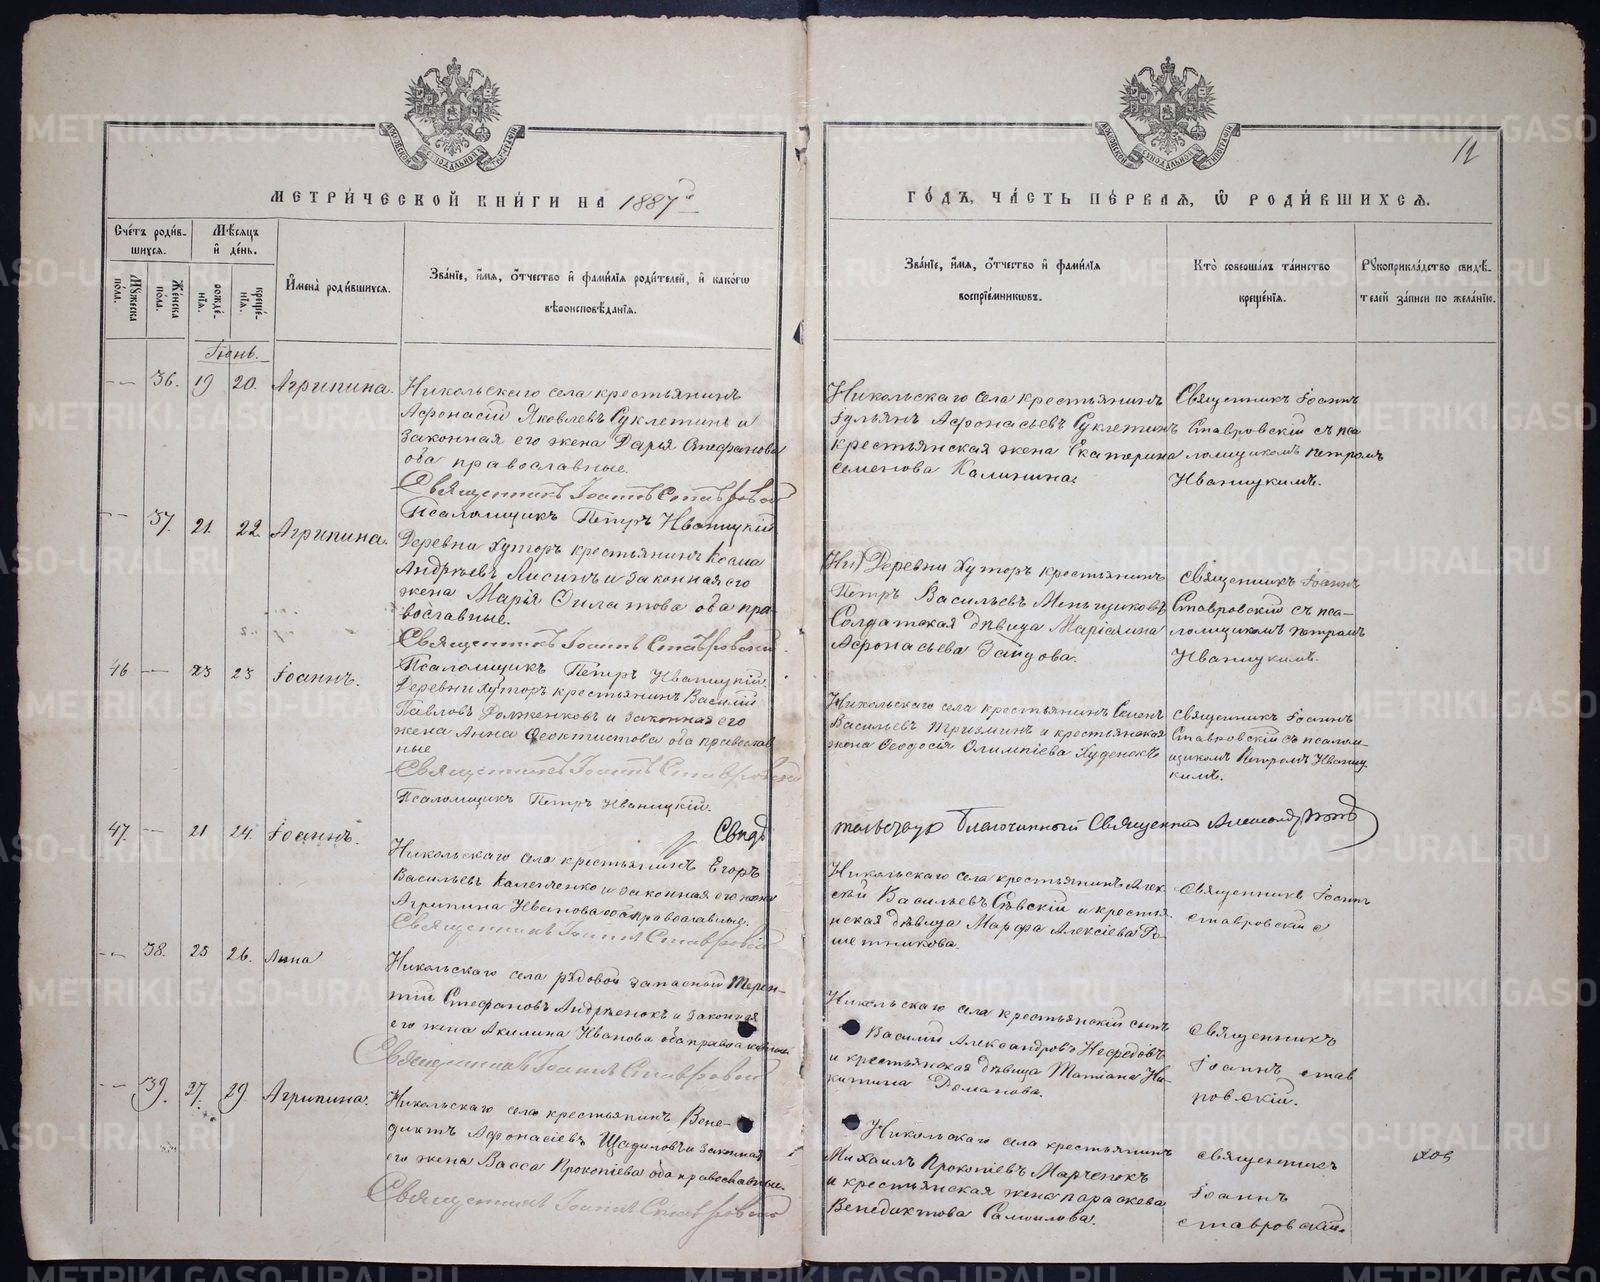 12
МЕТРИ́ЧЕСКОЙ КНИ́ГИ НА 1887й
ГО́ДЪ, ЧА́СТЬ ПЕ́РВАѦ, Ѿ РОДИ́ВШИХСѦ.
Сче́тъ роди́в-
шихсѧ.
Мꙋжеска по́ла.
Же́нска по́ла.
Мѣсѧцъ
и҆ де́нь.
рожде́-
нїѧ.
креще́-
нїѧ.
И҆мена̀ роди́вшихсѧ.
Зва́нїе, и҆́мѧ, ѻ҆́тчество и҆ фами́лїѧ роди́телей, и҆ како́гѡ
вѣроисповѣ́данїѧ.
Зва́нїе, и҆́мѧ, ѻ҆́тчество и҆ фами́лїѧ
воспрїе́мникѡвъ.
Кто̀ соверша́лъ та́инство
креще́нїѧ.
Рꙋкоприкла́дство свидѣ́-
телей за́писи по жела́нїю.
Іюнь.
36. 19 20. Агрипина.
Никольскаго села крестьянинъ
Афонасій Яковлевъ Суклетинъ и
законная его жена Дарья Стефанова
оба православные.
Священникъ Іоаннъ Ставровскій
Псаломщикъ Петръ Иваницкій
Никольскаго села крестьянинъ
Гульянъ Афонасьевъ Суклетинъ
крестьянская жена Екатерина
Семенова Калинина.
Священникъ Іоаннъ
Ставровскій съ пса
ломщикомъ Петромъ
Иваницкимъ.
37. 21. 22. Агрипина.
Деревни Хуторъ крестьянинъ Косма
Андреевъ Лисинъ и законная его
жена Марія Филатова оба пра-
вославные.
Священникъ Іоаннъ Ставровскій
Псаломщикъ Петръ Иваницкій
Деревни Хуторъ крестьянинъ
Петръ Васильевъ Меньщиковъ
Солдатская дѣвица Маріамна
Афонасьева
Священникъ Іоаннъ
Ставровскій съ пса-
ломщикомъ Петромъ
Иваницкимъ.
46 23 23 Іоаннъ.
Деревни Хуторъ крестьянинъ Василій
Павловъ Долженковъ и законная его
жена Анна Феоктистова оба православ
ные
Священникъ Іоаннъ Ставровскій
Псаломщикъ Петръ Иваницкій.
Никольскаго села крестьянинъ Семенъ
Васильевъ и крестьянская
жена Феодосія Олимпіева Худенокъ
Священникъ Іоаннъ
Ставровскій съ псалом-
щикомъ Петромъ Иваниц
кимъ.
Свидѣ
тельствую Благочинный Священникъ Александръ
47. 21 24. Іоаннъ.
Никольскаго села крестьянинъ Егоръ
Васильевъ Каленченко и законная его жена
Агрипина Иванова оба православные.
Священникъ Іоаннъ Ставровскій
Никольскаго села крестьянинъ Алек
сѣй Васильевъ Сѣвскій и крестья
нская дѣвица Марфа Алексіева Рѣ-
шетникова.
Священникъ Іоаннъ
Ставровскій
38. 25 26. Анна
Никольскаго села рядовой запасный Терен-
тій Стефановъ Андреенокъ и законная
его жена Акилина Иванова оба православные
Священникъ Іоаннъ Ставровскій
Никольскаго села крестьянскій сынъ
Василій Александровъ Нефедовъ
и крестьянская дѣвица Татіана Ни-
китина Романова.
Священникъ
Іоаннъ Став
ровскій.
39. 27. 29. Агрипина.
Никольскаго села крестьянинъ Вене-
диктъ Афонасіевъ Щадиловъ и законная
его жена Васса Прокопіева оба православные.
Священникъ Іоаннъ Ставровскій
Никольскаго села крестьянинъ
Михаилъ Прокопіевъ Марченокъ
и крестьянская жена Параскева
Венедиктова Самоилова.
Священникъ
Іоаннъ
Ставровскій.
METRIKI.GASO-URAL.RU